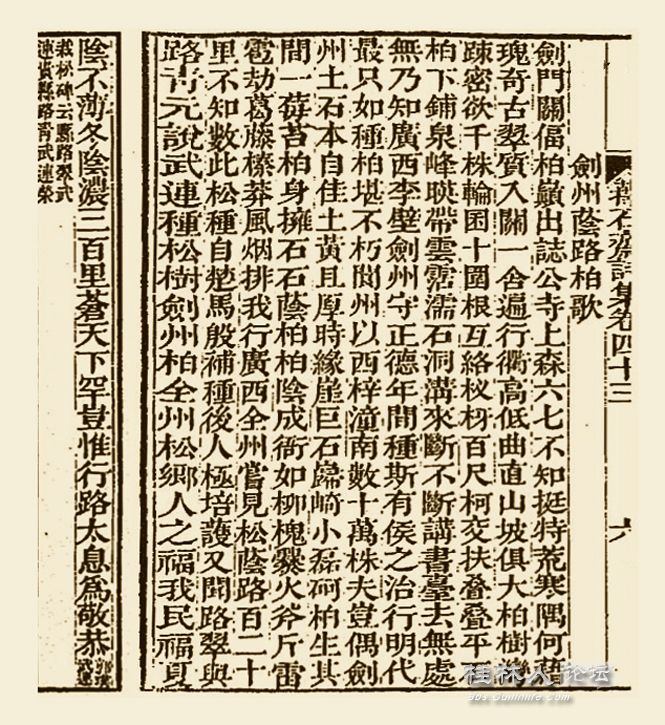 石齋詩集卷四十三 六
劍州蔭路柏歌
劍門關偪柏巔出誌公寺上森六七不知挺特荒寒隅何藉
瑰奇古翠質入關一舍遍行衢高低曲直山坡俱大柏樹
疎密欲千株輪囷十圍根互絡杈枒百尺柯交扶叠叠平
柏下鋪泉峰暎帶雲霑濡石洞溝來斷不斷講書臺去無處
無乃知廣西李壁劍州守正德年間種斯有侯之治行明代
最只如種柏堪不朽閬州以西梓潼南數十萬株夫豈偶劍
州土石本自佳土黃且厚時緣崖巨石巋崎小磊砢柏生其
間一莓苔柏身擁石石蔭柏柏陰成衙如柳槐爨火斧斤雷
雹劫葛藤榛莽風烟排我行廣西全州嘗見松蔭路百二十
里不知數此松種自楚馬殷補種後人極培護又聞路翠與
路青元說武連種松樹劍州柏全州松鄉人之福我民福夏
陰不薄冬陰濃三百里蒼天下罕豈惟行路太息為敬恭
武連
栽松碑云縣路翠武
連貢縣路青武連榮
桂林人论坛